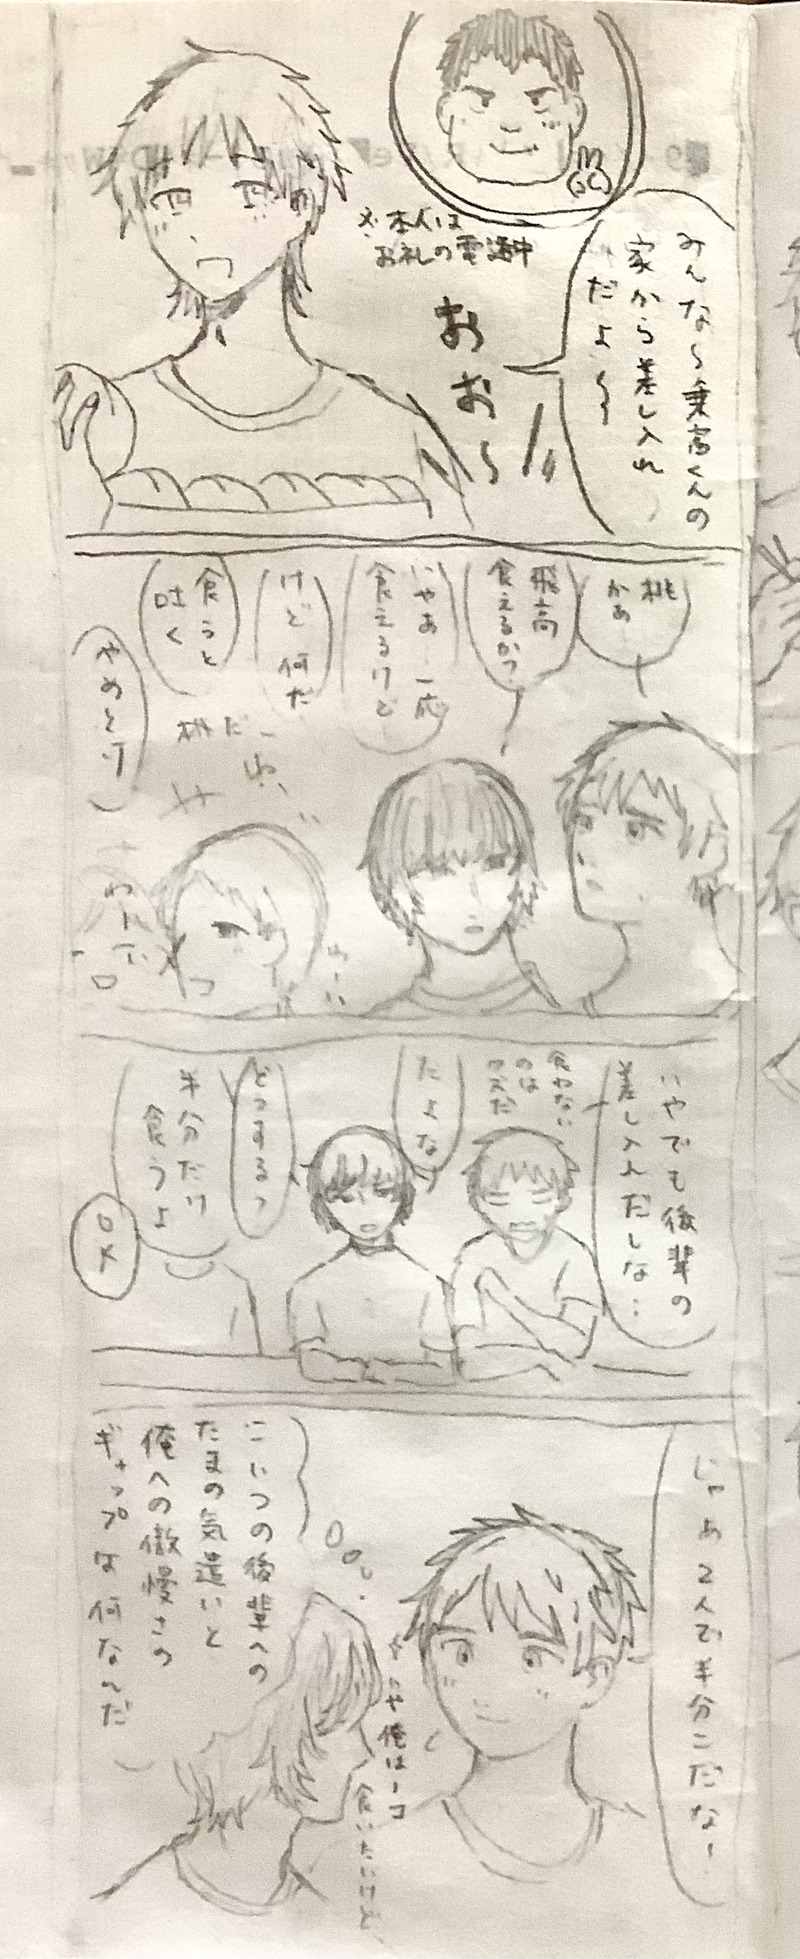 みんな〜乗富くんの
家から差し入れ
だよ〜
※本人は
お礼の電話中
おお〜
桃
かぁ
飛高
食えるか？
いやぁ一応
食えるけど
けど何だ
食うと
吐く
やめとけ
桃だ
わーい
いやでも後輩の
差し入れだしな…
食わない
のは
ダメだ
だよな
どうする？
半分だけ
食うよ
OK
じゃあ2人で半分こだな！
いや俺は1コ
食いたいけど
こいつの後輩への
たまの気遣いと
俺への傲慢さの
ギャップは何なんだ